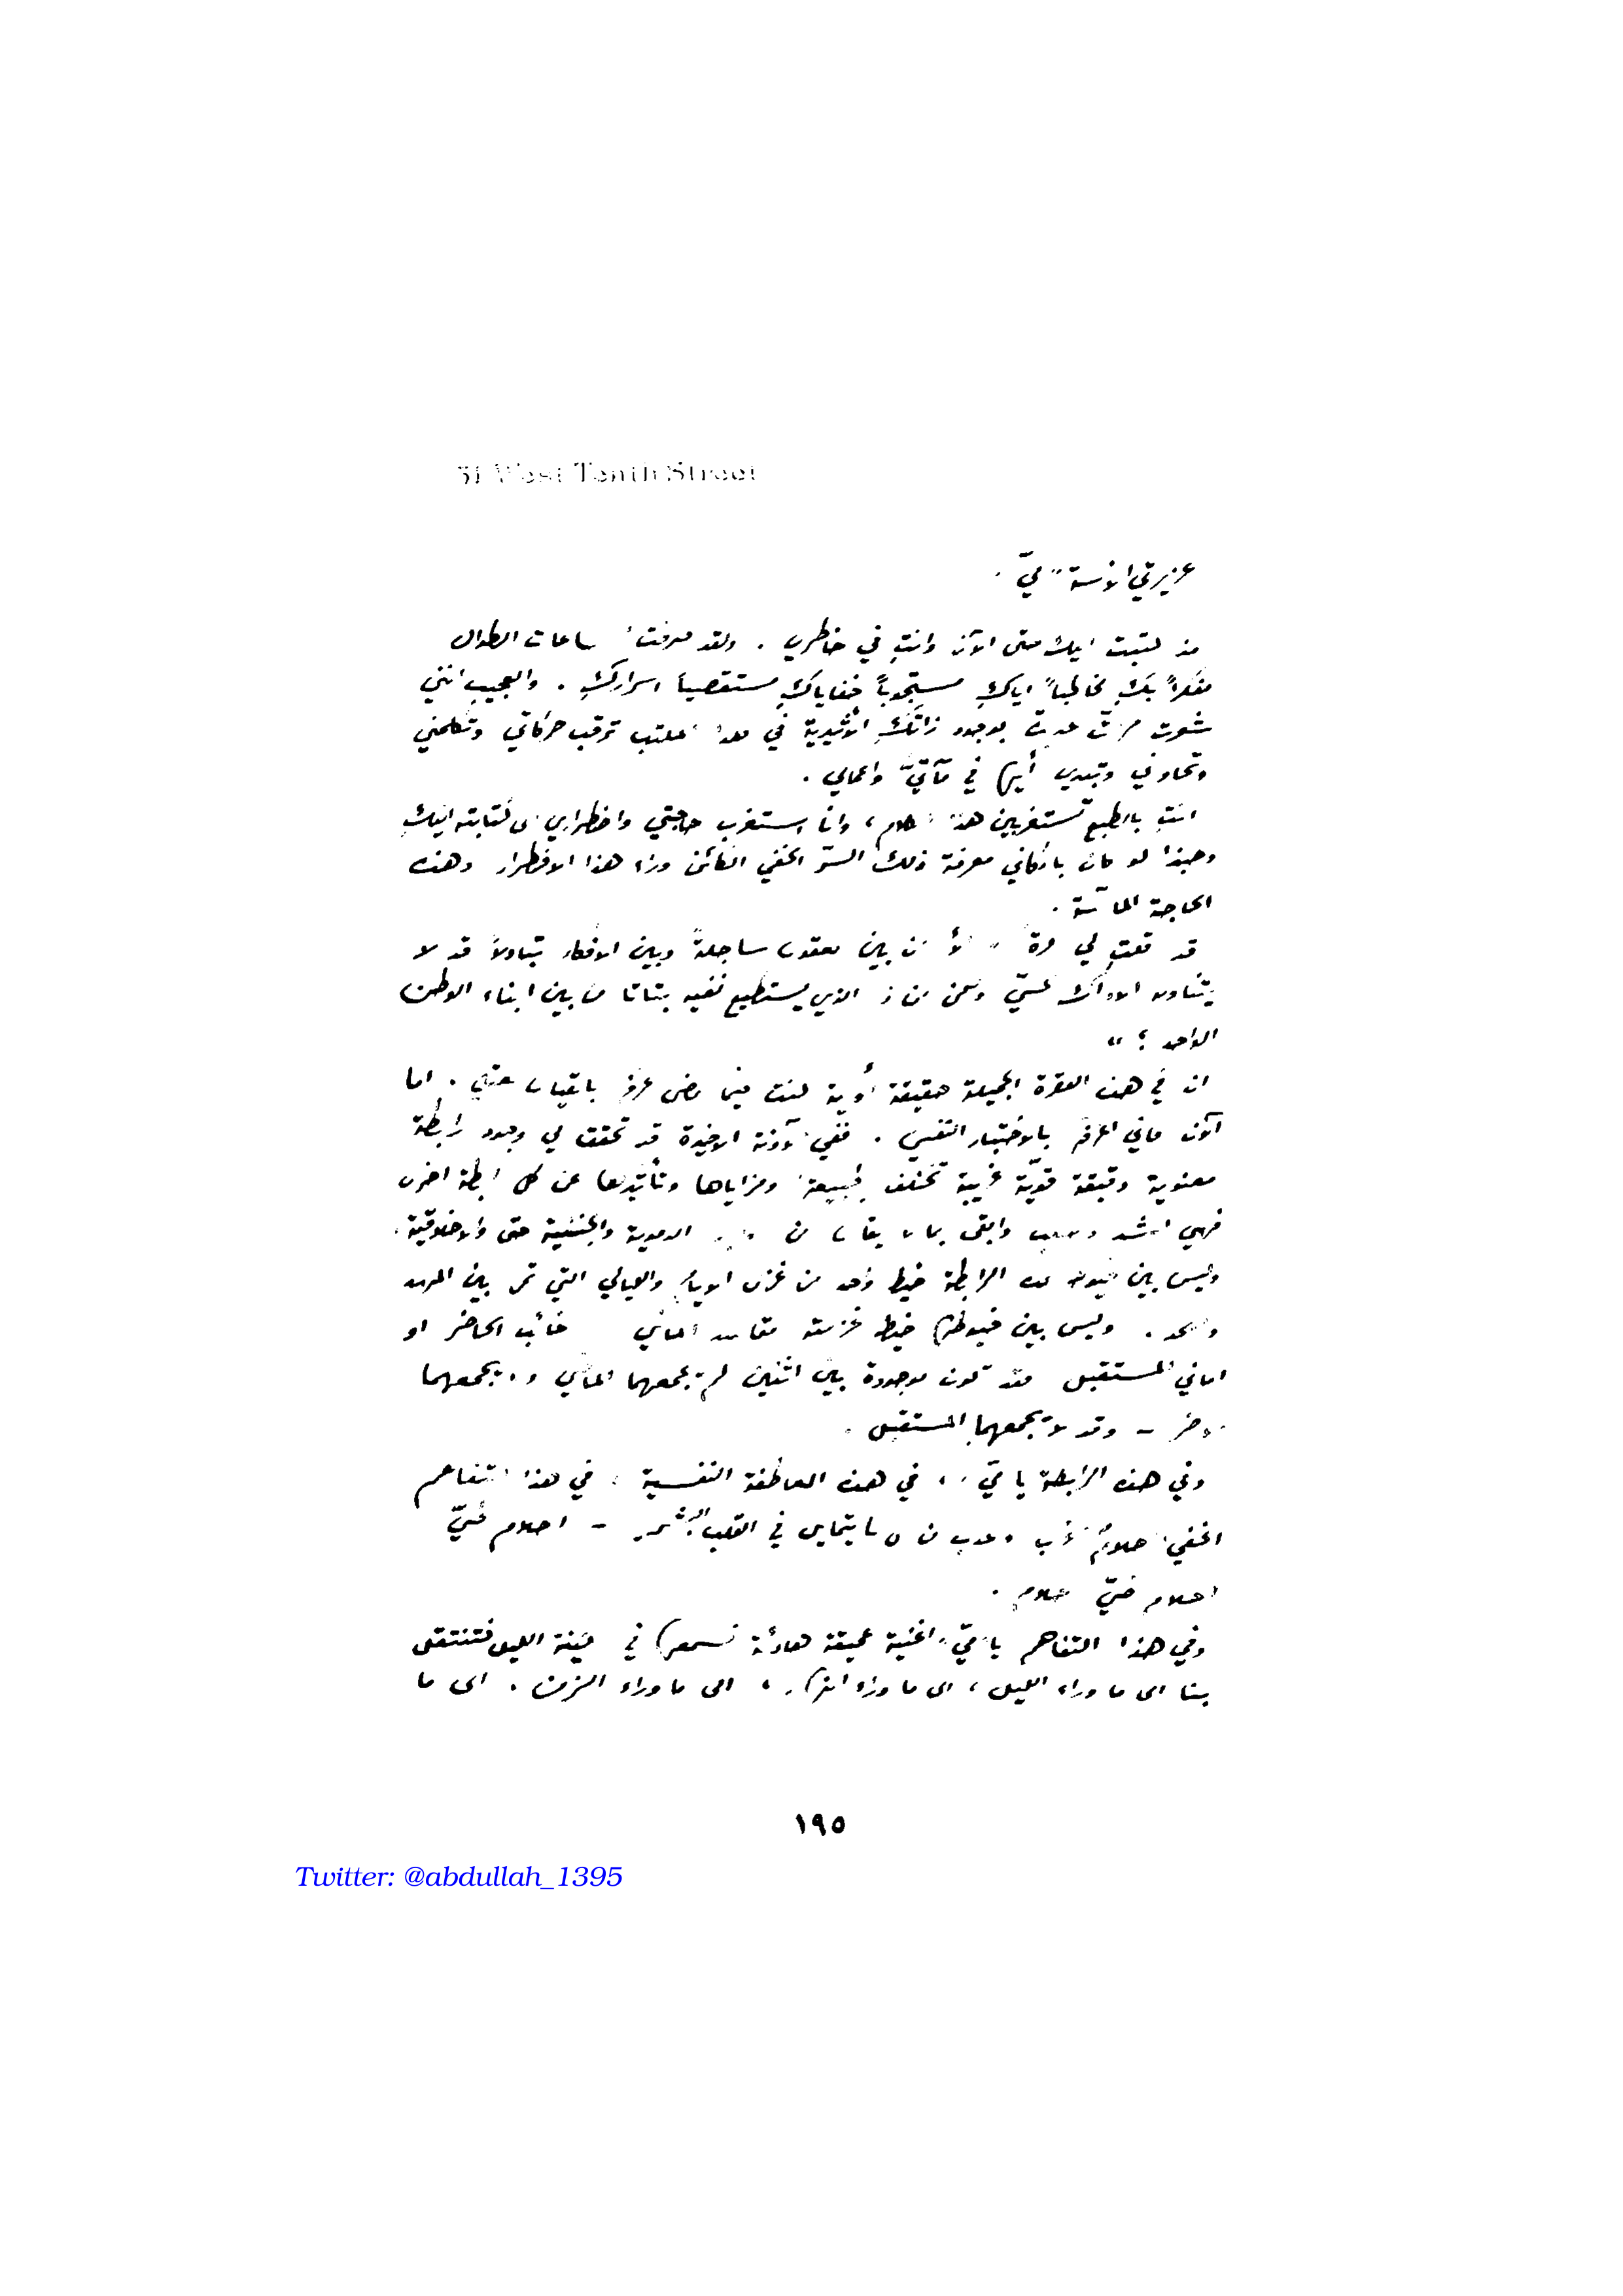 51 West Tenth Street
عزيزتي الآنسة ميّ .
منذ كتبت اليك حتى الآن وانتِ في خاطري . ولقد صرفتُ ساعات الطوال
مفكراً بكِ مخاطباً اياكِ مستجوباً خفاياكِ مستقصياً اسراركِ . والعجيب انني
شعرت مرات عديدة بوجود ذاتكِ الأثيرية في هذا المكتب ترقب حركاتي وتكلمني
وتحاورني وتبدي رأيها في مآتيّ واعمالي .
انتِ بالطبع تستغربين هذا الكلام ، وانا استغرب حاجتي واضطراري الى الكتابة اليكِ
وحبذا لو كان بامكاني معرفة ذلك السرّ الخفي الكائن وراء هذا الاضطرار وهذه
الحاجة الماسّة .
قد قلتِ لي مرة " ألا ان بين العقول مساجلةً وبين الافكار تبادلاً قد لا
يتناوله الادراك الحسيّ ولكن من ذا الذي يستطيع نفيه بتاتا من بين ابناء الوطن
الواحد ؟ "
ان في هذه الفقرة الجميلة حقيقة أولية كنت فيما مضى اعرفها بالقياس العقلي . اما
الآن فاني اعرفها بالاختبار النفسي . ففي الآونة الاخيرة قد تحقق لي وجود رابطة
معنوية دقيقة قويّة غريبة تختلف بطبيعتها ومزاياها وتأثيرها عن كل رابطة اخرى
فهي اشد واصلب وابقى بما لا يقاس من الدموية والجنينية حتى والاخلاقية .
وليس بين خيوط هذه الرابطة خيط واحد من غزل الايام والليالي التي تمر بين المهد
واللحد . وليس بين خيوطها خيط غزلته مقاصد الماضي رغائب الحاضر او
اماني المستقبل فقد تكون موجودة بين اثنين لم يجمعهما الماضي ولا يجمعهما
الحاضر – وقد لا يجمعهما المستقبل .
وفي هذه الرابطة يا ميّ ، في هذه العاطفة النفسية ، في هذا التفاهم
الخفي احلامٌ اغرب واعجب من كل ما يتمايل في القلب البشري – احلام طيّ
احلام طيّ احلام .
وفي هذا التفاهم يا ميّ ، اغنية عميقة هادئة نسمعها في سكينة الليل فتنتقل
بنا الى ما وراء الليل ، الى ما وراء النهار ، الى ما وراء الزمن ، الى ما
١٩٥
Twitter: @abdullah_1395